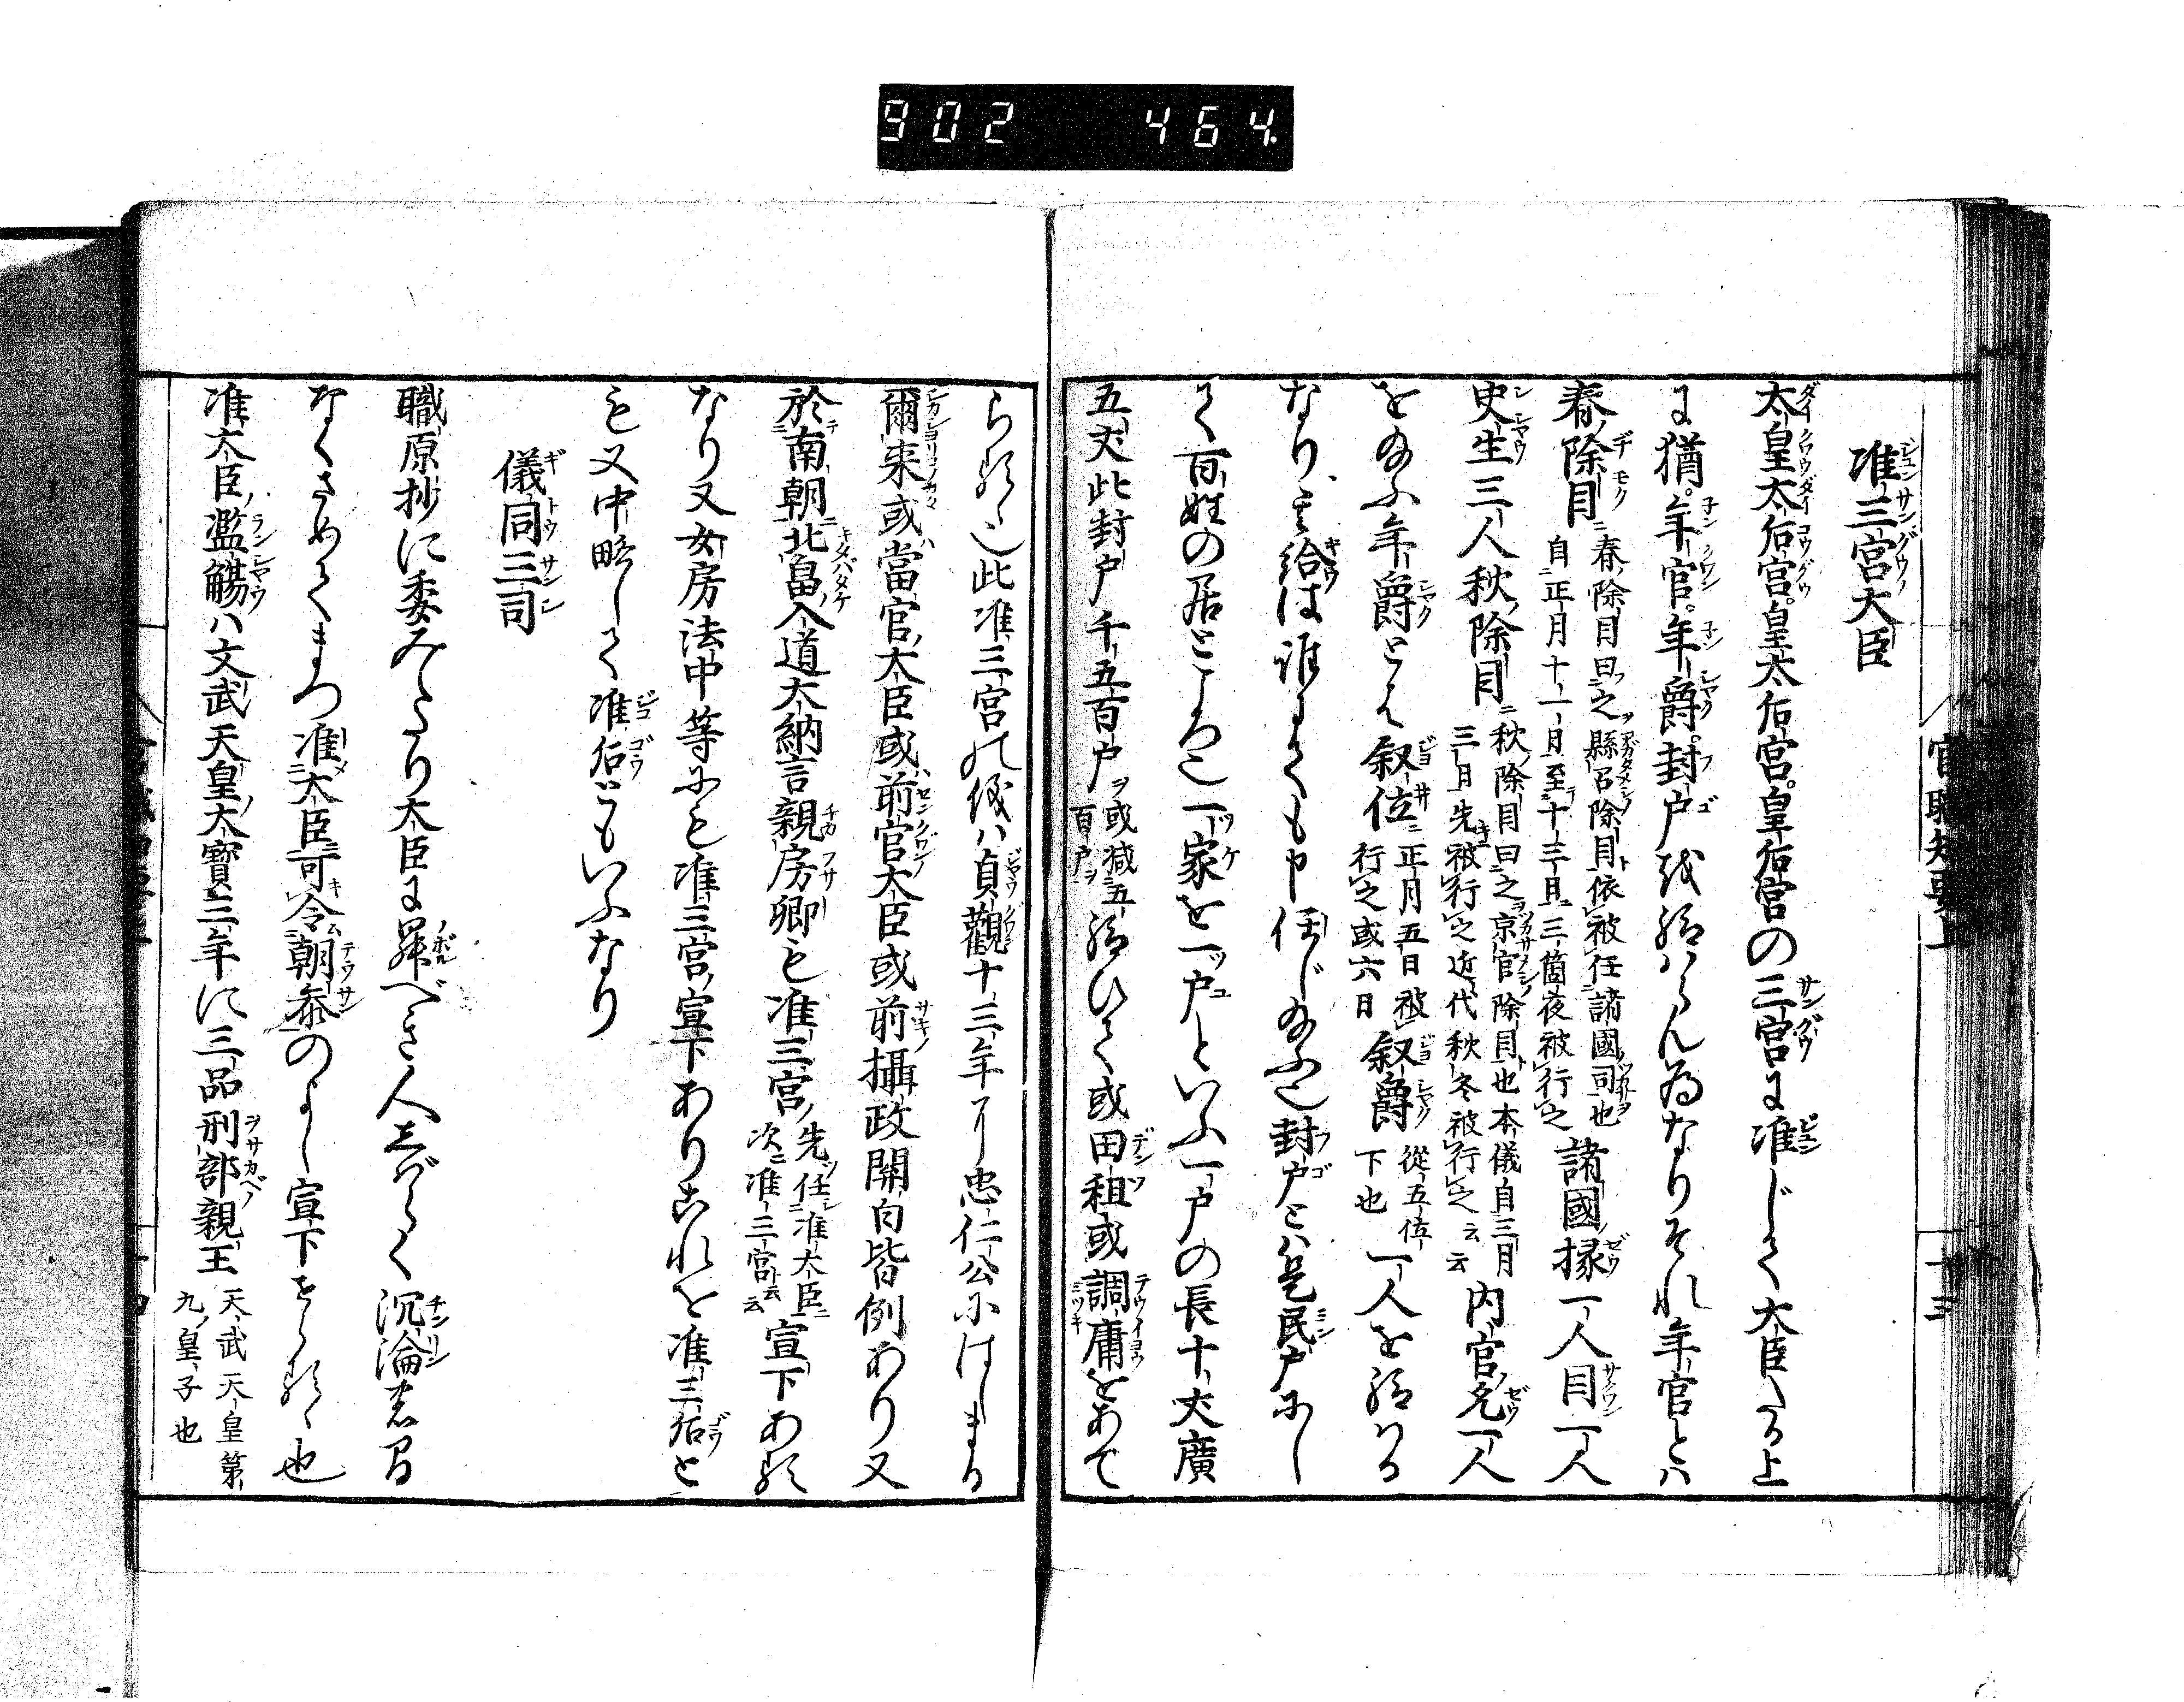 902 464
官職知要上
十三
准三宮大臣
太皇太后宮。皇太后宮。皇后宮の三宮に准じて大臣たる上
に猶。年官。年爵。封戸を給はらん為なりそれ年官とハ
春除目春除目曰之縣召除目依被任諸國司也
自正月十一日至十三日三箇夜被行之諸國掾一人目一人
史生三人秋除目秋除目曰之京官除目也本儀自三月
三月先被行之近代秋冬被行之云云内官允一人
を給ふ年爵とは叙位正月五日被
行之或六日叙爵從五位
下也一人を給はる
なり其給は誰にても申任じ給ふ也封戸とハ是民戸にし
て百姓の居ところ也一家を一戸といふ一戸の長十丈廣
五丈此封戸千五百戸或減五
百戸給ひて或田租或調庸をあて
らるゝ也此准三宮の儀ハ貞觀十三年に忠仁公にはじまる
爾来或當官大臣或前官大臣或前攝政關白皆例あり又
於南朝北畠入道大納言親房卿も准三宮先任准大臣
次准三宮云云宣下ある
なり又女房法中等にも准三宮宣下ありこれを准三后と
も又中略して准后ともいふなり
儀同三司
職原抄に委みえたり大臣に昇べき人しばらく沉淪する間
なくさめてまつ准大臣可令朝参のよし宣下せらるゝ也
准大臣濫觴ハ文武天皇大寶三年に三品刑部親王天武天皇第
九皇子也